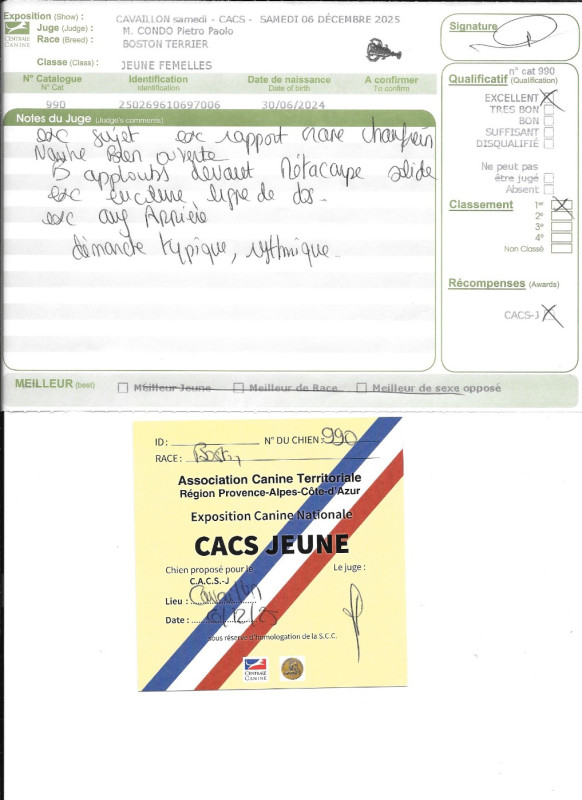 Exposition (Show) : CAVAILLON samedi - CACS - SAMEDI 06 DÉCEMBRE 2025
Juge (Judge) : M. CONDO Pietro Paolo
Race (Breed) : BOSTON TERRIER
Classe (Class) : JEUNE FEMELLES
CENTRALE CANINE
N° Catalogue Identification Date de naissance A confirmer
N° Cat Identification Date of birth To confirm
990 250269610697006 30/06/2024
Notes du Juge (Judge's comments)
exc sujet exc rapport crane chanfrein
Narine Bien ouverte
B applombs devant Métacarpe solide
exc encolure ligne de dos.
exc ang Arrière
démarche typique, rythmique
Signature
n° cat 990
Qualificatif (Qualification)
EXCELLENT
TRES BON
BON
SUFFISANT
DISQUALIFIÉ
Ne peut pas
être jugé
Absent
Classement 1er
2e
3e
4e
Non Classé
Récompenses (Awards)
CACS-J
MEILLEUR (best) Meilleur Jeune Meilleur de Race Meilleur de sexe opposé
ID : N° DU CHIEN : 990
RACE : Boston
Association Canine Territoriale
Région Provence-Alpes-Côte-d'Azur
Exposition Canine Nationale
CACS JEUNE
Chien proposé pour le Le juge :
C.A.C.S.-J
Lieu : Cavaillon
Date : 6/12/25
sous réserve d'homologation de la S.C.C.
CENTRALE CANINE